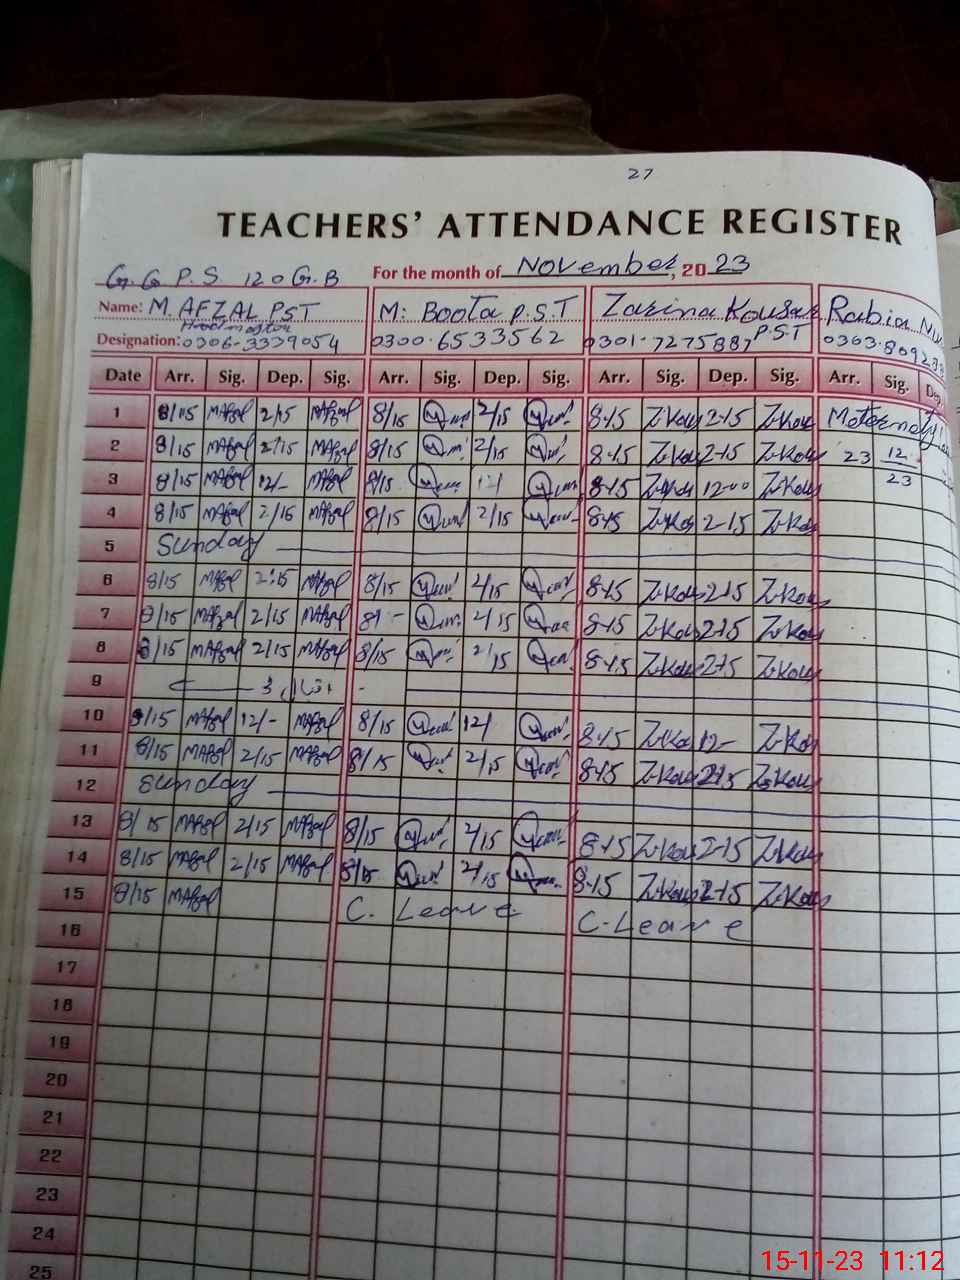 27
TEACHERS' ATTENDANCE REGISTER
G.G P.S 120 G.B For the month of November, 20 23
Name: M. AFZAL PST M: Boota P.S.T Zarina Kousar P.S.T Rabia
Headmaster
Designation: 0306-3339054 0300.6533562 0301.7275887
Date Arr. Sig. Dep. Sig. Arr. Sig. Dep. Sig. Arr. Sig. Dep. Sig. Arr. Sig. Dep.
1 8/15 MAfzal 2/15 MAfzal 8/15 2/15 8-15 Z-Kou 2-15 Z-Kou
2 8/15 MAfzal 2/15 MAfzal 8/15 2/15 8-15 Z-Kou 2-15 Z-Kou 23 12 23
3 8/15 MAfzal 12/- MAfzal 8/15 12/ 8-15 Z-Kou 12-00 Z-Kou
4 8/15 MAfzal 2/15 MAfzal 8/15 2/15 8-15 Z-Kou 2-15 Z-Kou
5 Sunday
6 8/15 MAfzal 2:15 MAfzal 8/15 2/15 8-15 Z-Kou 2-15 Z-Kou
7 8/15 MAfzal 2/15 MAfzal 8/- 2/15 8-15 Z-Kou 2-15 Z-Kou
8 8/15 MAfzal 2/15 MAfzal 8/15 2/15 8-15 Z-Kou 2-15 Z-Kou
9
10 8/15 MAfzal 12/- MAfzal 8/15 12/ 8-15 Z-Kou 12- Z-Kou
11 8/15 MAfzal 2/15 MAfzal 8/15 2/15 8-15 Z-Kou 2-15 Z-Kou
12 Sunday
13 8/15 MAfzal 2/15 MAfzal 8/15 2/15 8-15 Z-Kou 2-15 Z-Kou
14 8/15 MAfzal 2/15 MAfzal 8/15 2/15 8-15 Z-Kou 2-15 Z-Kou
15 8/15 MAfzal C. Leave C-Leave
16
17
18
19
20
21
22
23
24
25
15-11-23 11:12